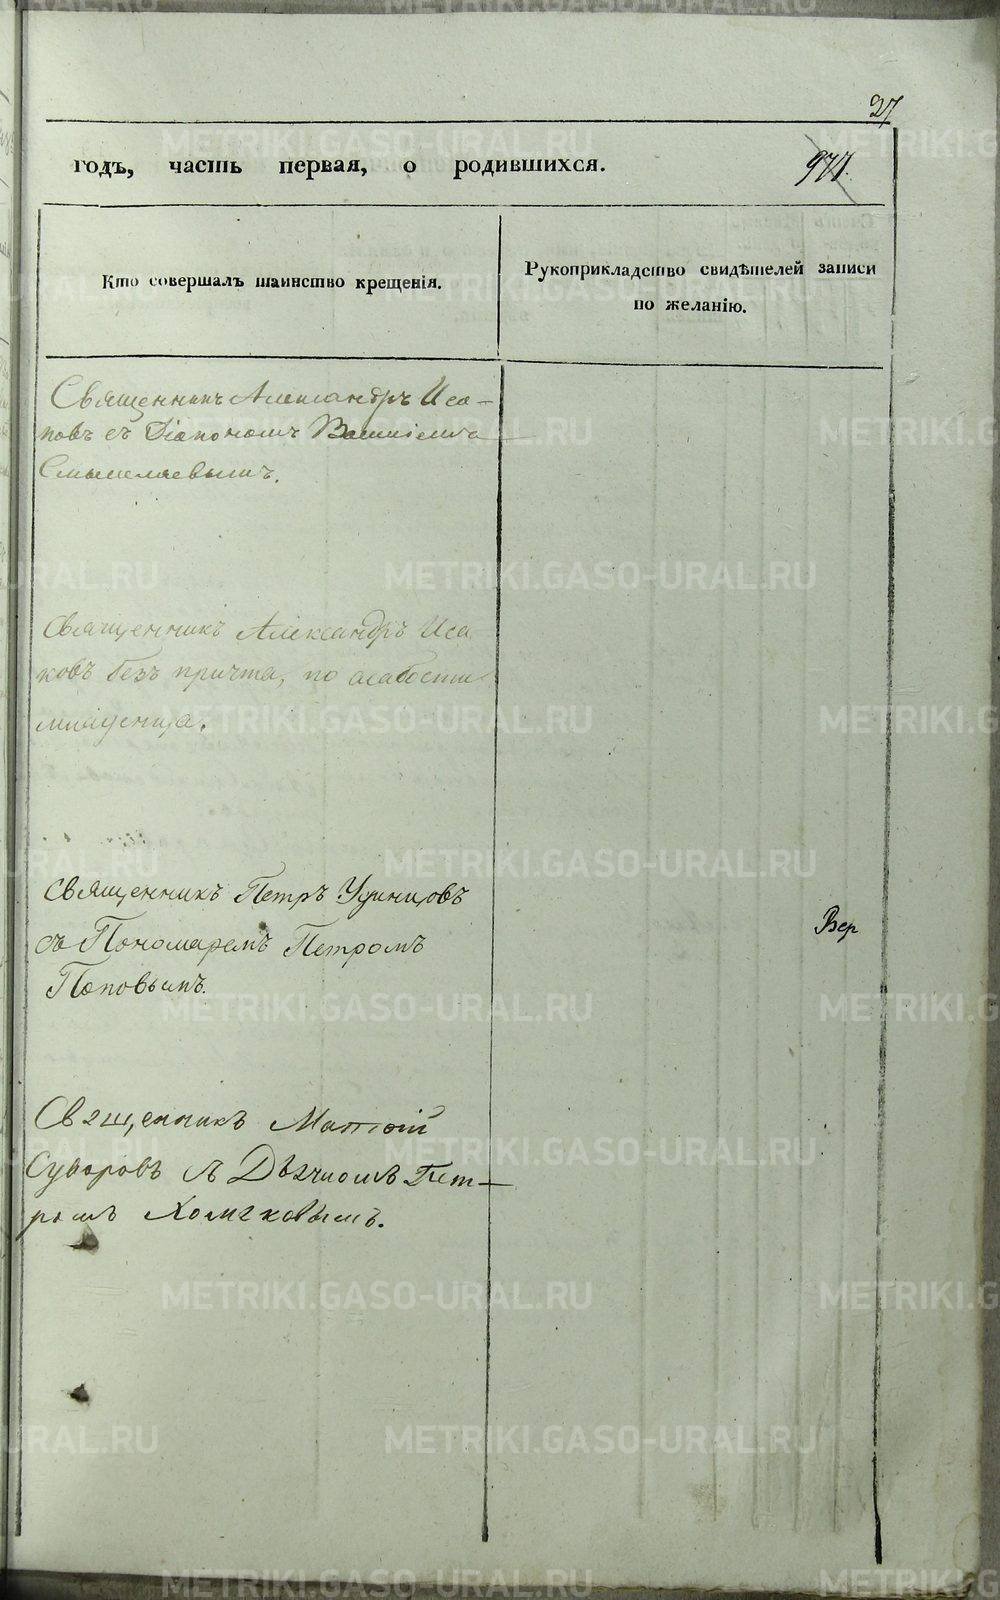 27
годъ, часть первая, о родившихся.
971.
Кто совершалъ таинство крещенія.
Рукоприкладство свидѣтелей записи
по желанію.
Священникъ Александръ Иса-
ковъ съ Діакономъ
Смышляевымъ.
Священникъ Александръ Иса
ковъ безъ причта, по слабости
младенца.
Священникъ Петръ Удинцовъ
съ Пономаремъ Петромъ
Поповымъ.
Вер
Священникъ Матѳій
Суворовъ съ Дьячкомъ Пет-
ромъ Хомяковымъ.
METRIKI.GASO-URAL.RU